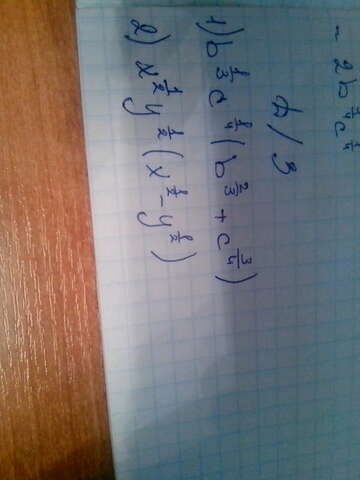 - 2b^{1/4}c^{1/4}
д/з
1) b^{1/3}c^{1/4}(b^{2/3}+c^{3/4})
2) x^{1/2}y^{1/2}(x^{1/2}-y^{1/2})